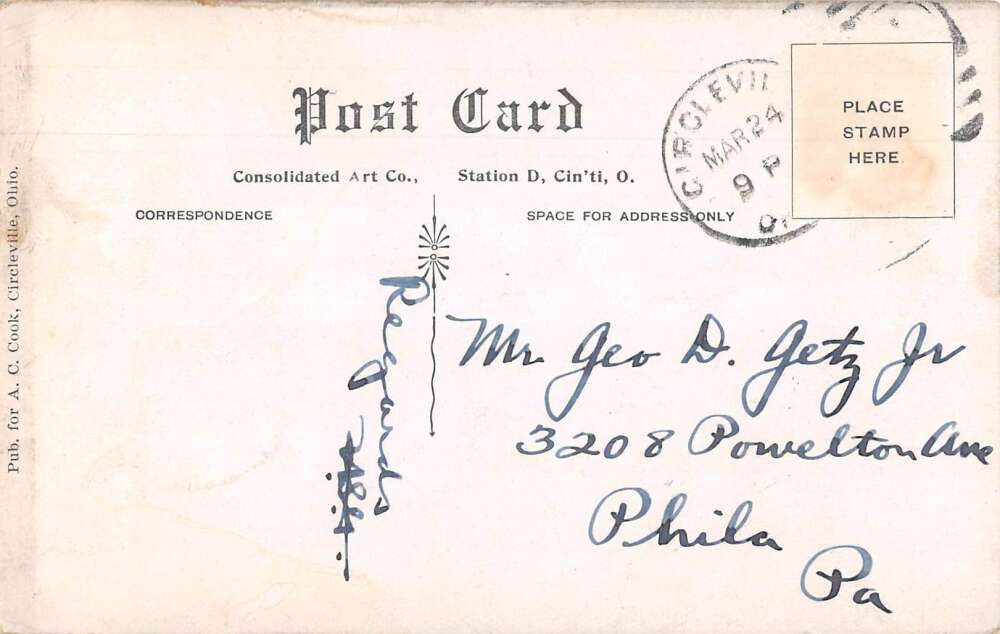 Post Card
Consolidated Art Co., Station D, Cin'ti, O.
CORRESPONDENCE
SPACE FOR ADDRESS ONLY
PLACE
STAMP
HERE
CIRCLEVIL
MAR 24
9 P
O.
Pub. for A. C. Cook, Circleville, Ohio.
Regards
Mr. Geo D. Getz Jr
3208 Powelton Ave
Phila
Pa